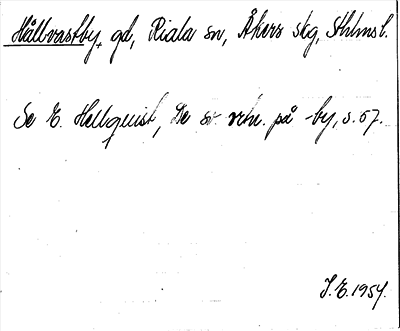 Hållvastby, gd, Riala sn, Åkers skg, Sthlms l.
Se E. Hellquist, De sv. ortn. på -by, s. 57.
J.E. 1954.